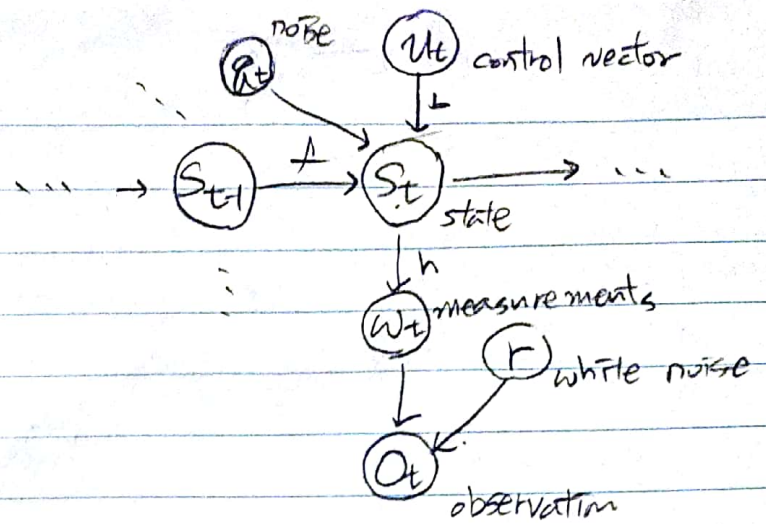 noise
u_t control vector
L
S_t-1
S_t
state
h
w_t measurements
r white noise
O_t
observation